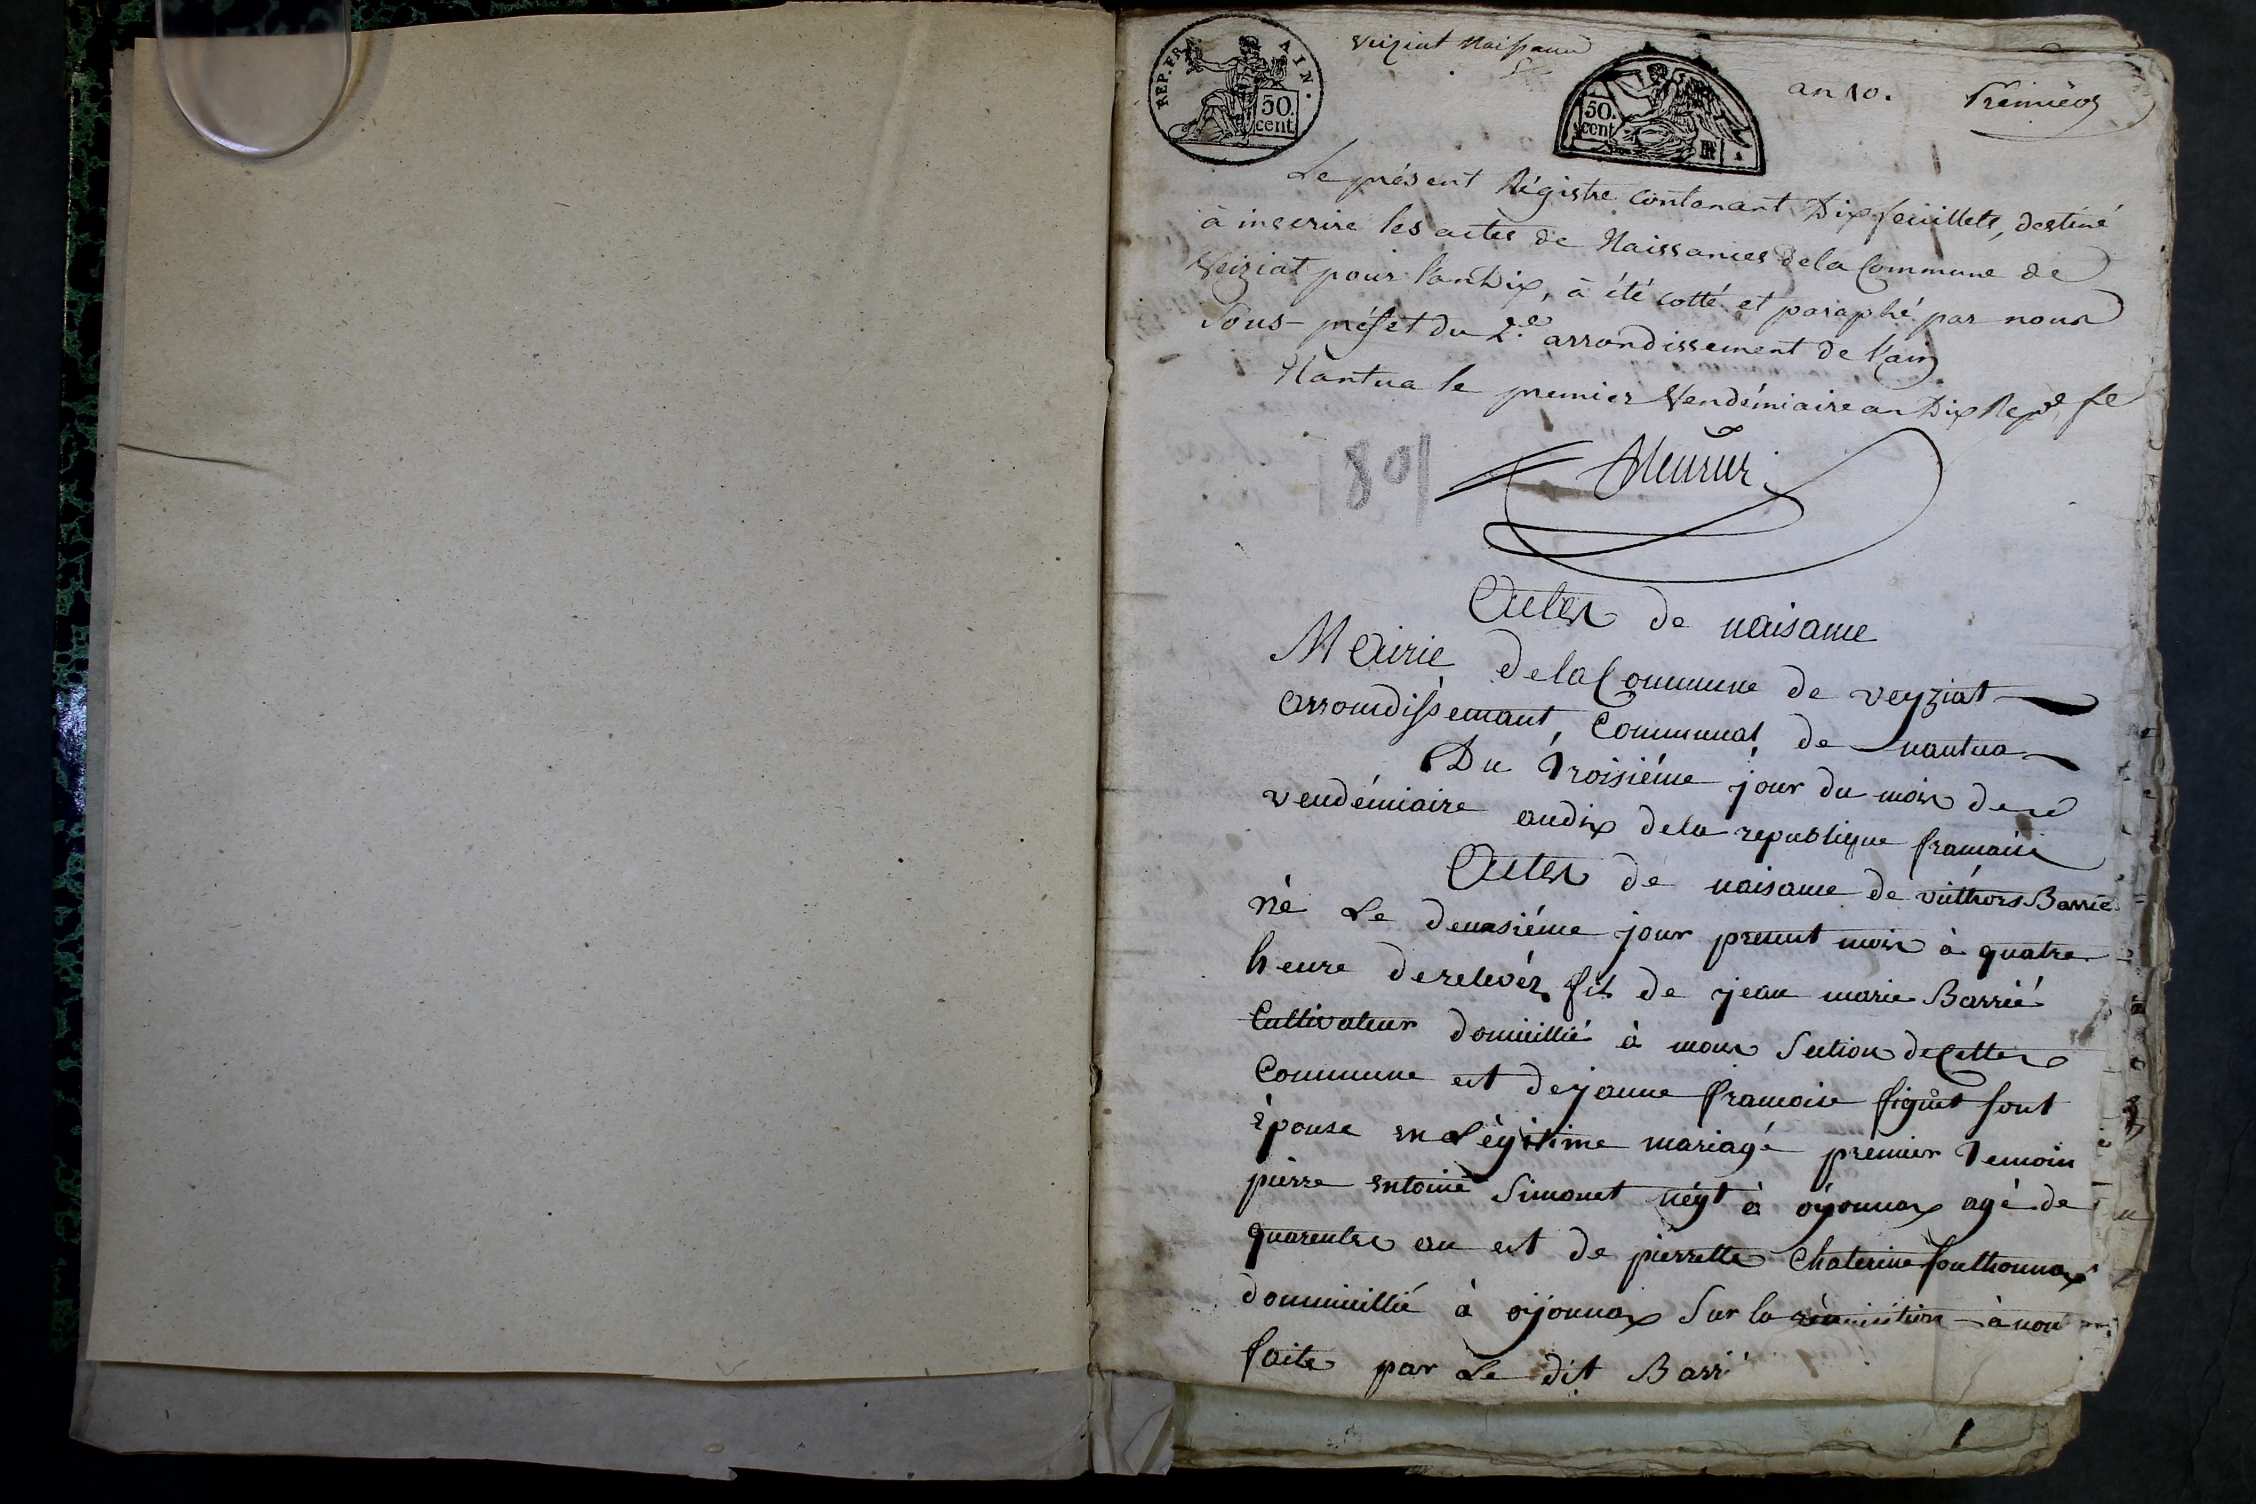 REP. FRA. AIN.
50. cent
Veiziat Naissance
50. cent
an 10.
Premier
Le présent Régistre contenant Dix feuillets, destiné
à inscrire les actes de Naissances de la Commune de
Veiziat pour l'an Dix, à été cotté et paraphé par nous
Sous-préfet du 2.e arrondissement de l'ain
Nantua le premier Vendémiaire an Dix Rep.e fe
1801
Actes de naisance
Mairie de la Commune de veyziat
arroudissemant, Communal de nantua
Du troisiéme jour du mois de
vendémiaire andix dela republique francaise
Actes de naisance de Barrié
né Le deuxsiéme jour present mois à quatre
heure derelevéz fils de jean marie Barrié
Cultivateur domicillié à mons Section decette
Commune est dejanne francoise figuet sont
épouse en Légitime mariagé premier temoin
pierre entoine Simonet à oyonnax agé de
quarente an est de pierrette Chaterine
dommicillié à oijonnax Sur la à nou
faite par Le dit Barri
1